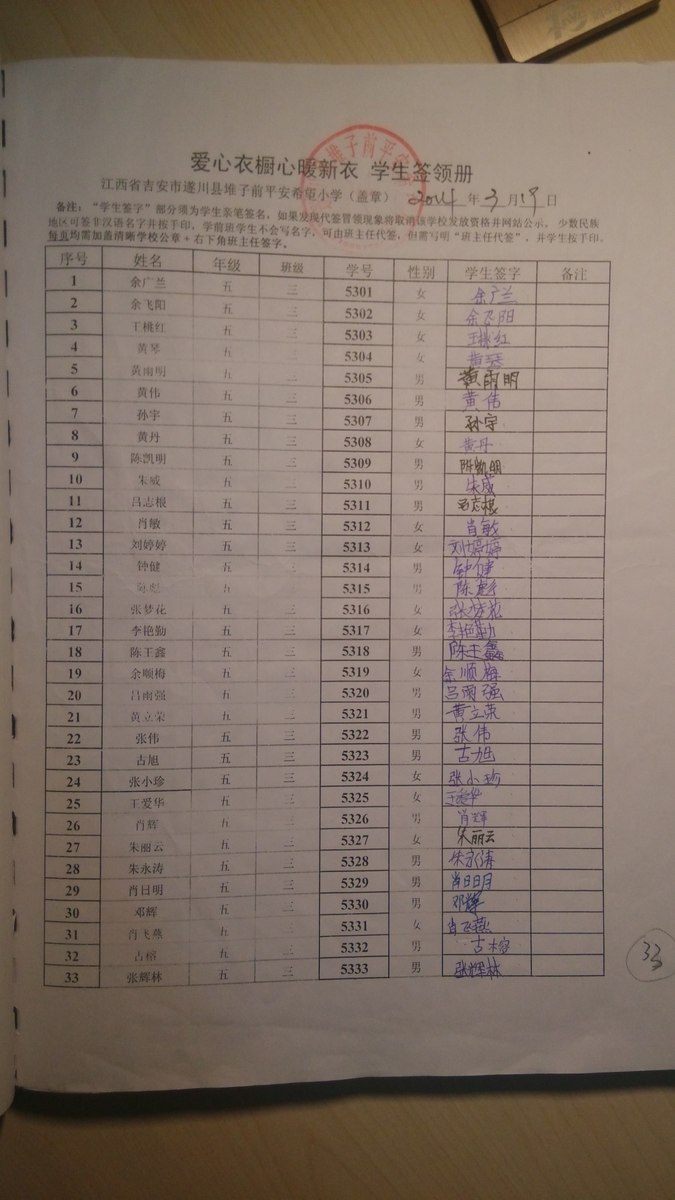 爱心衣橱心暖新衣 学生签领册
江西省吉安市遂川县堆子前平安希望小学（盖章） 2014 年 3 月 19 日
备注："学生签字"部分须为学生亲笔签名，如果发现代签冒领现象将取消该学校发放资格并网站公示， 少数民族
地区可签非汉语名字并按手印，学前班学生不会写名字，可由班主任代签，但需写明"班主任代签"，并学生按手印。
每页均需加盖清晰学校公章＋右下角班主任签字。
序号 姓名 年级 班级 学号 性别 学生签字 备注
1 余广兰 五 三 5301 女 余广兰
2 余飞阳 五 三 5302 女 余飞阳
3 王桃红 五 三 5303 女 王桃红
4 黄琴 五 三 5304 女 黄琴
5 黄雨明 五 三 5305 男 黄雨明
6 黄伟 五 三 5306 男 黄伟
7 孙宇 五 三 5307 男 孙宇
8 黄丹 五 三 5308 女 黄丹
9 陈凯明 五 三 5309 男 陈凯明
10 朱威 五 三 5310 男 朱威
11 吕志根 五 三 5311 男 吕志根
12 肖敏 五 三 5312 女 肖敏
13 刘婷婷 五 三 5313 女 刘婷婷
14 钟健 五 三 5314 男 钟健
15 陈彪 五 三 5315 男 陈彪
16 张梦花 五 三 5316 女 张梦花
17 李艳勤 五 三 5317 女 李艳勤
18 陈王鑫 五 三 5318 男 陈王鑫
19 余顺梅 五 三 5319 女 余顺梅
20 吕雨强 五 三 5320 男 吕雨强
21 黄立荣 五 三 5321 男 黄立荣
22 张伟 五 三 5322 男 张伟
23 古旭 五 三 5323 男 古旭
24 张小珍 五 三 5324 女 张小珍
25 王爱华 五 三 5325 女 王爱华
26 肖辉 五 三 5326 男 肖辉
27 朱丽云 五 三 5327 女 朱丽云
28 朱永涛 五 三 5328 男 朱永涛
29 肖日明 五 三 5329 男 肖日明
30 邓辉 五 三 5330 男 邓辉
31 肖飞燕 五 三 5331 女 肖飞燕
32 古榕 五 三 5332 男 古榕
33 张辉林 五 三 5333 男 张辉林
33